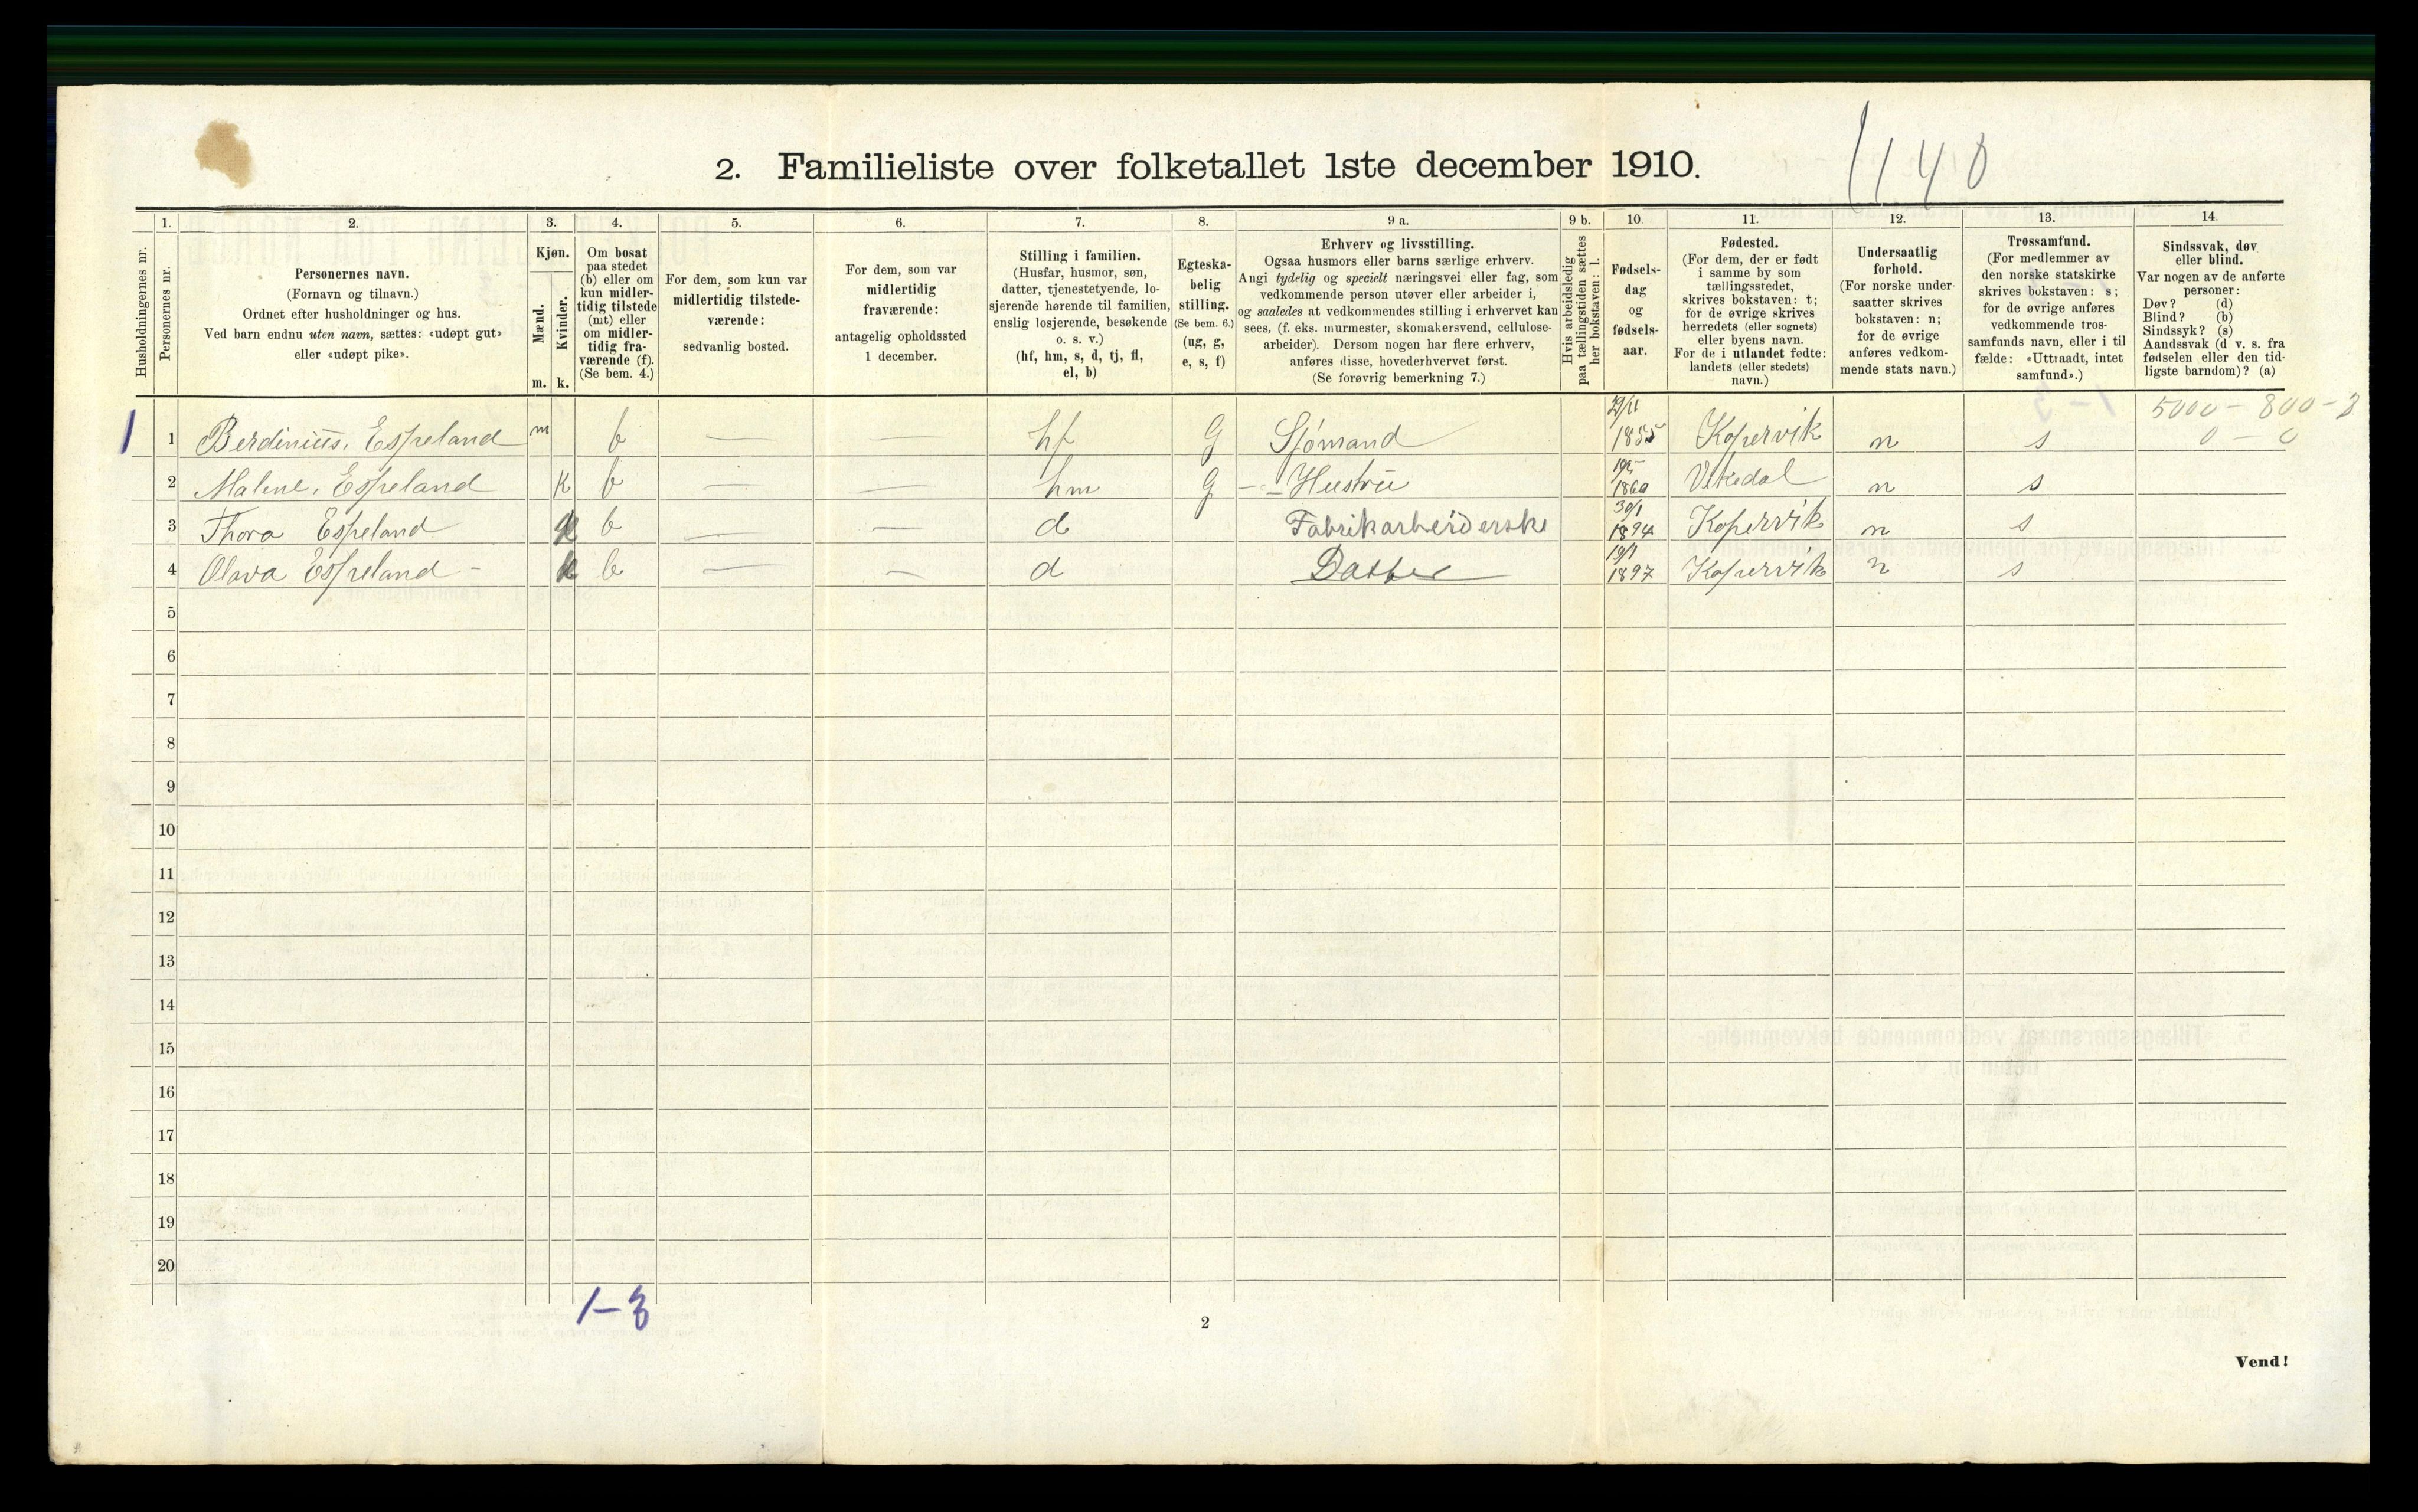 1140
2. Familieliste over folketallet 1ste december 1910.
Husholdningernes nr.
1.
Personernes nr.
2.
Personernes navn.
(Fornavn og tilnavn.)
Ordnet efter husholdninger og hus.
Ved barn endnu uten navn, sættes: «udøpt gut»
eller «udøpt pike».
3.
Kjøn.
Mænd.
Kvinder.
m. k.
4.
Om bosat
paa stedet
(b) eller om
kun midler-
tidig tilstede
(mt) eller
om midler-
tidig fra-
værende (f).
(Se bem. 4.)
5.
For dem, som kun var
midlertidig tilstede-
værende:
sedvanlig bosted.
6.
For dem, som var
midlertidig
fraværende:
antagelig opholdssted
1 december.
7.
Stilling i familien.
(Husfar, husmor, søn,
datter, tjenestetyende, lo-
sjerende hørende til familien,
enslig losjerende, besøkende
o. s. v.)
(hf, hm, s, d, tj, fl,
el, b)
8.
Egteska-
belig
stilling.
(Se bem. 6.)
(ug, g,
e, s, f)
9 a.
Erhverv og livsstilling.
Ogsaa husmors eller barns særlige erhverv.
Angi tydelig og specielt næringsvei eller fag, som
vedkommende person utøver eller arbeider i,
og saaledes at vedkommendes stilling i erhvervet kan
sees, (f. eks. murmester, skomakersvend, cellulose-
arbeider). Dersom nogen har flere erhverv,
anføres disse, hovederhvervet først.
(Se forøvrig bemerkning 7.)
9 b.
Hvis arbeidsledig
paa tællingstiden sættes
her bokstaven: l.
10.
Fødsels-
dag
og
fødsels-
aar.
11.
Fødested.
(For dem, der er født
i samme by som
tællingsstedet,
skrives bokstaven: t;
for de øvrige skrives
herredets (eller sognets)
eller byens navn.
For de i utlandet fødte:
landets (eller stedets)
navn.)
12.
Undersaatlig
forhold.
(For norske under-
saatter skrives
bokstaven: n;
for de øvrige
anføres vedkom-
mende stats navn.)
13.
Trossamfund.
(For medlemmer av
den norske statskirke
skrives bokstaven: s;
for de øvrige anføres
vedkommende tros-
samfunds navn, eller i til
fælde: «Uttraadt, intet
samfund».)
14.
Sindssvak, døv
eller blind.
Var nogen av de anførte
personer:
Døv? (d)
Blind? (b)
Sindssyk? (s)
Aandssvak (d v. s. fra
fødselen eller den tid-
ligste barndom)? (a)
5000 - 800 - 3
0 - 0
1 1 Berdinius, Espeland m b — — hf G Sjømand 1855 Kopervik n s
2 Malene, Espeland k b — — hm G - Hustru 1860 Vikedal n s
3 Thora Espeland k b — — d Fabrikarbeiderske 30/1 1894 Kopervik n s
4 Olava Espeland - k b — — d Datter 19/1 1897 Kopervik n s
5
6
7
8
9
10
11
12
13
14
15
16
17
18
19
20
1-3
2
Vend!